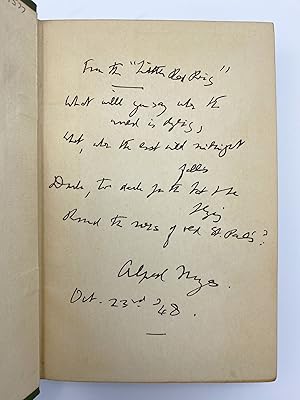 From the "Little Red Ring"
What will you say when the
world is dying,
What, when the last wild midnight
falls
Dark, too dark for the bat to be
flying
Round the ruins of old St. Paul's?
Alfred Noyes.
Oct. 23rd '48.